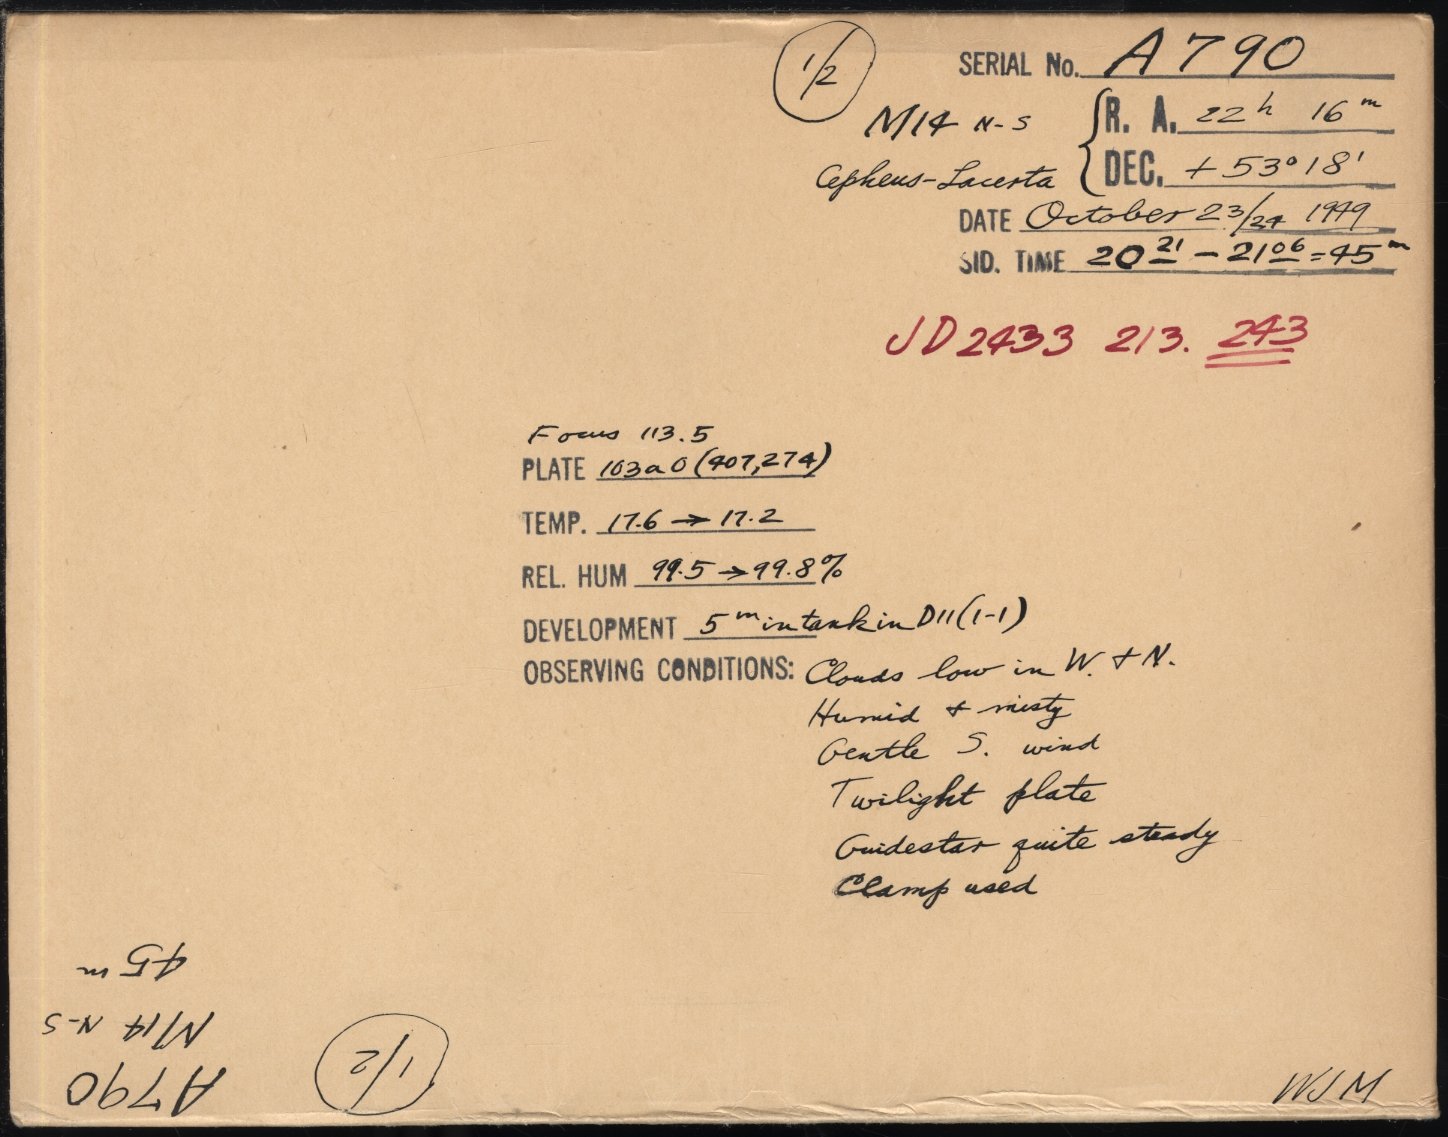 1/2
SERIAL No. A790
M14 N-S
R. A. 22h 16m
Cepheus-Lacerta
DEC. +53°18'
DATE October 23/24 1949
SID. TIME 20 21 - 21 06 = 45m
JD 2433 213. 243
Focus 113.5
PLATE 103a O (407,274)
TEMP. 17.6 → 17.2
REL. HUM 99.5 → 99.8%
DEVELOPMENT 5m in tank in D11 (1-1)
OBSERVING CONDITIONS: Clouds low in W. & N.
Humid & misty
Gentle S. wind
Twilight plate
Guidestar quite steady
Clamp used
A790
M14 N-S
45m
1/2
WJM